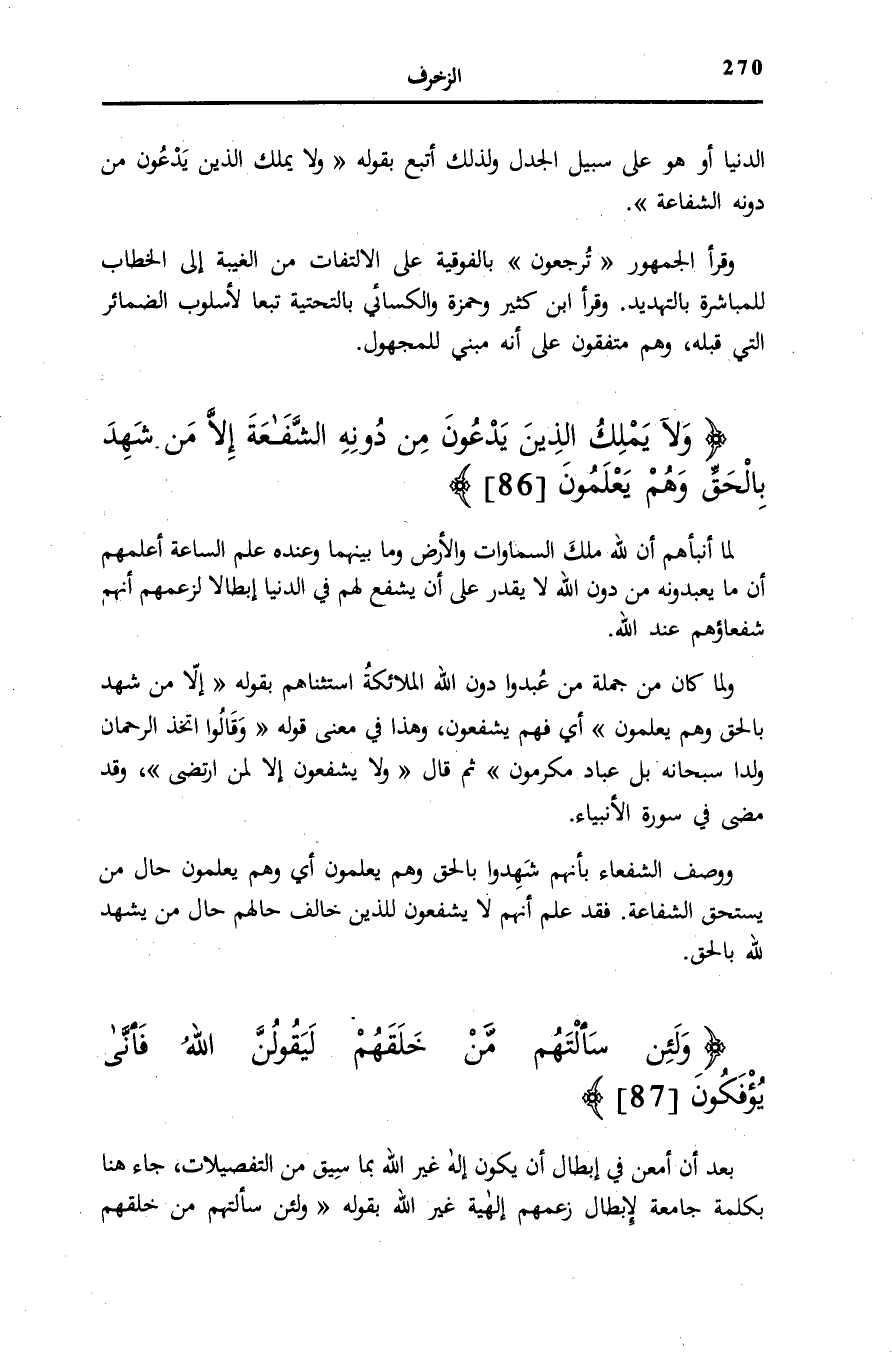 270
الزخرف
الدنيا أو هو على سبيل الجدل ولذلك أتبع بقوله « ولا يملك الذين يَدْعُون من
دونه الشفاعة ».
وقرأ الجمهور « تُرجعون » بالفوقية على الالتفات من الغيبة إلى الخطاب
للمباشرة بالتهديد. وقرأ ابن كثير وحمزة والكسائي بالتحتية تبعا لأسلوب الضمائر
التي قبله، وهم متفقون على أنه مبني للمجهول.
﴿ وَلَا يَمْلِكُ الذِينَ يَدْعُونَ مِن دُونِهِ الشَّفَـٰعَةَ إِلاَّ مَن شَهِدَ
بِالْحَقِّ وَهُمْ يَعْلَمُونَ [86] ﴾
لما أنبأهم أن لله ملكَ السماوات والأرض وما بينهما وعنده علم الساعة أعلمهم
أن ما يعبدونه من دون الله لا يقدر على أن يشفع لهم في الدنيا إبطالا لزعمهم أنهم
شفعاؤهم عند الله.
ولما كان من جملة من عُبدوا دون الله الملائكةُ استثناهم بقوله « إلّا من شهد
بالحق وهم يعلمون » أي فهم يشفعون، وهذا في معنى قوله « وَقَالُوا اتخذ الرحمان
ولدا سبحانه بل عباد مكرمون » ثم قال « ولا يشفعون إلا لمن ارتضى »، وقد
مضى في سورة الأنبياء.
ووصف الشفعاء بأنهم شَهِدوا بالحق وهم يعلمون أي وهم يعلمون حال من
يستحق الشفاعة. فقد علم أنهم لا يشفعون للذين خالف حالهم حال من يشهد
لله بالحق.
﴿ وَلَئِن سَأَلْتَهُم مَّنْ خَلَقَهُمْ لَيَقُولُنَّ اللهُ فَأَنَّىٰ
يُؤْفَكُونَ [87] ﴾
بعد أن أمعن في إبطال أن يكون إلهٰ غير الله بما سِيق من التفصيلات، جاء هنا
بكلمة جامعة لإبطال زعمهم إلهٰية غير الله بقوله « ولئن سألتهم من خلقهم